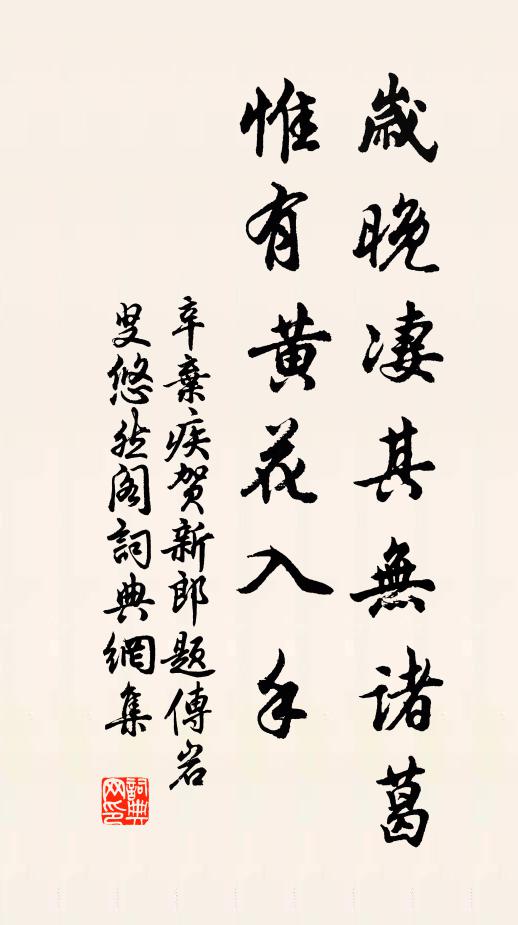 歲晚淒其無諸葛
惟有黃花入手
辛棄疾賀新郎題傅岩
叟悠然閣詞典網集
詞典网印